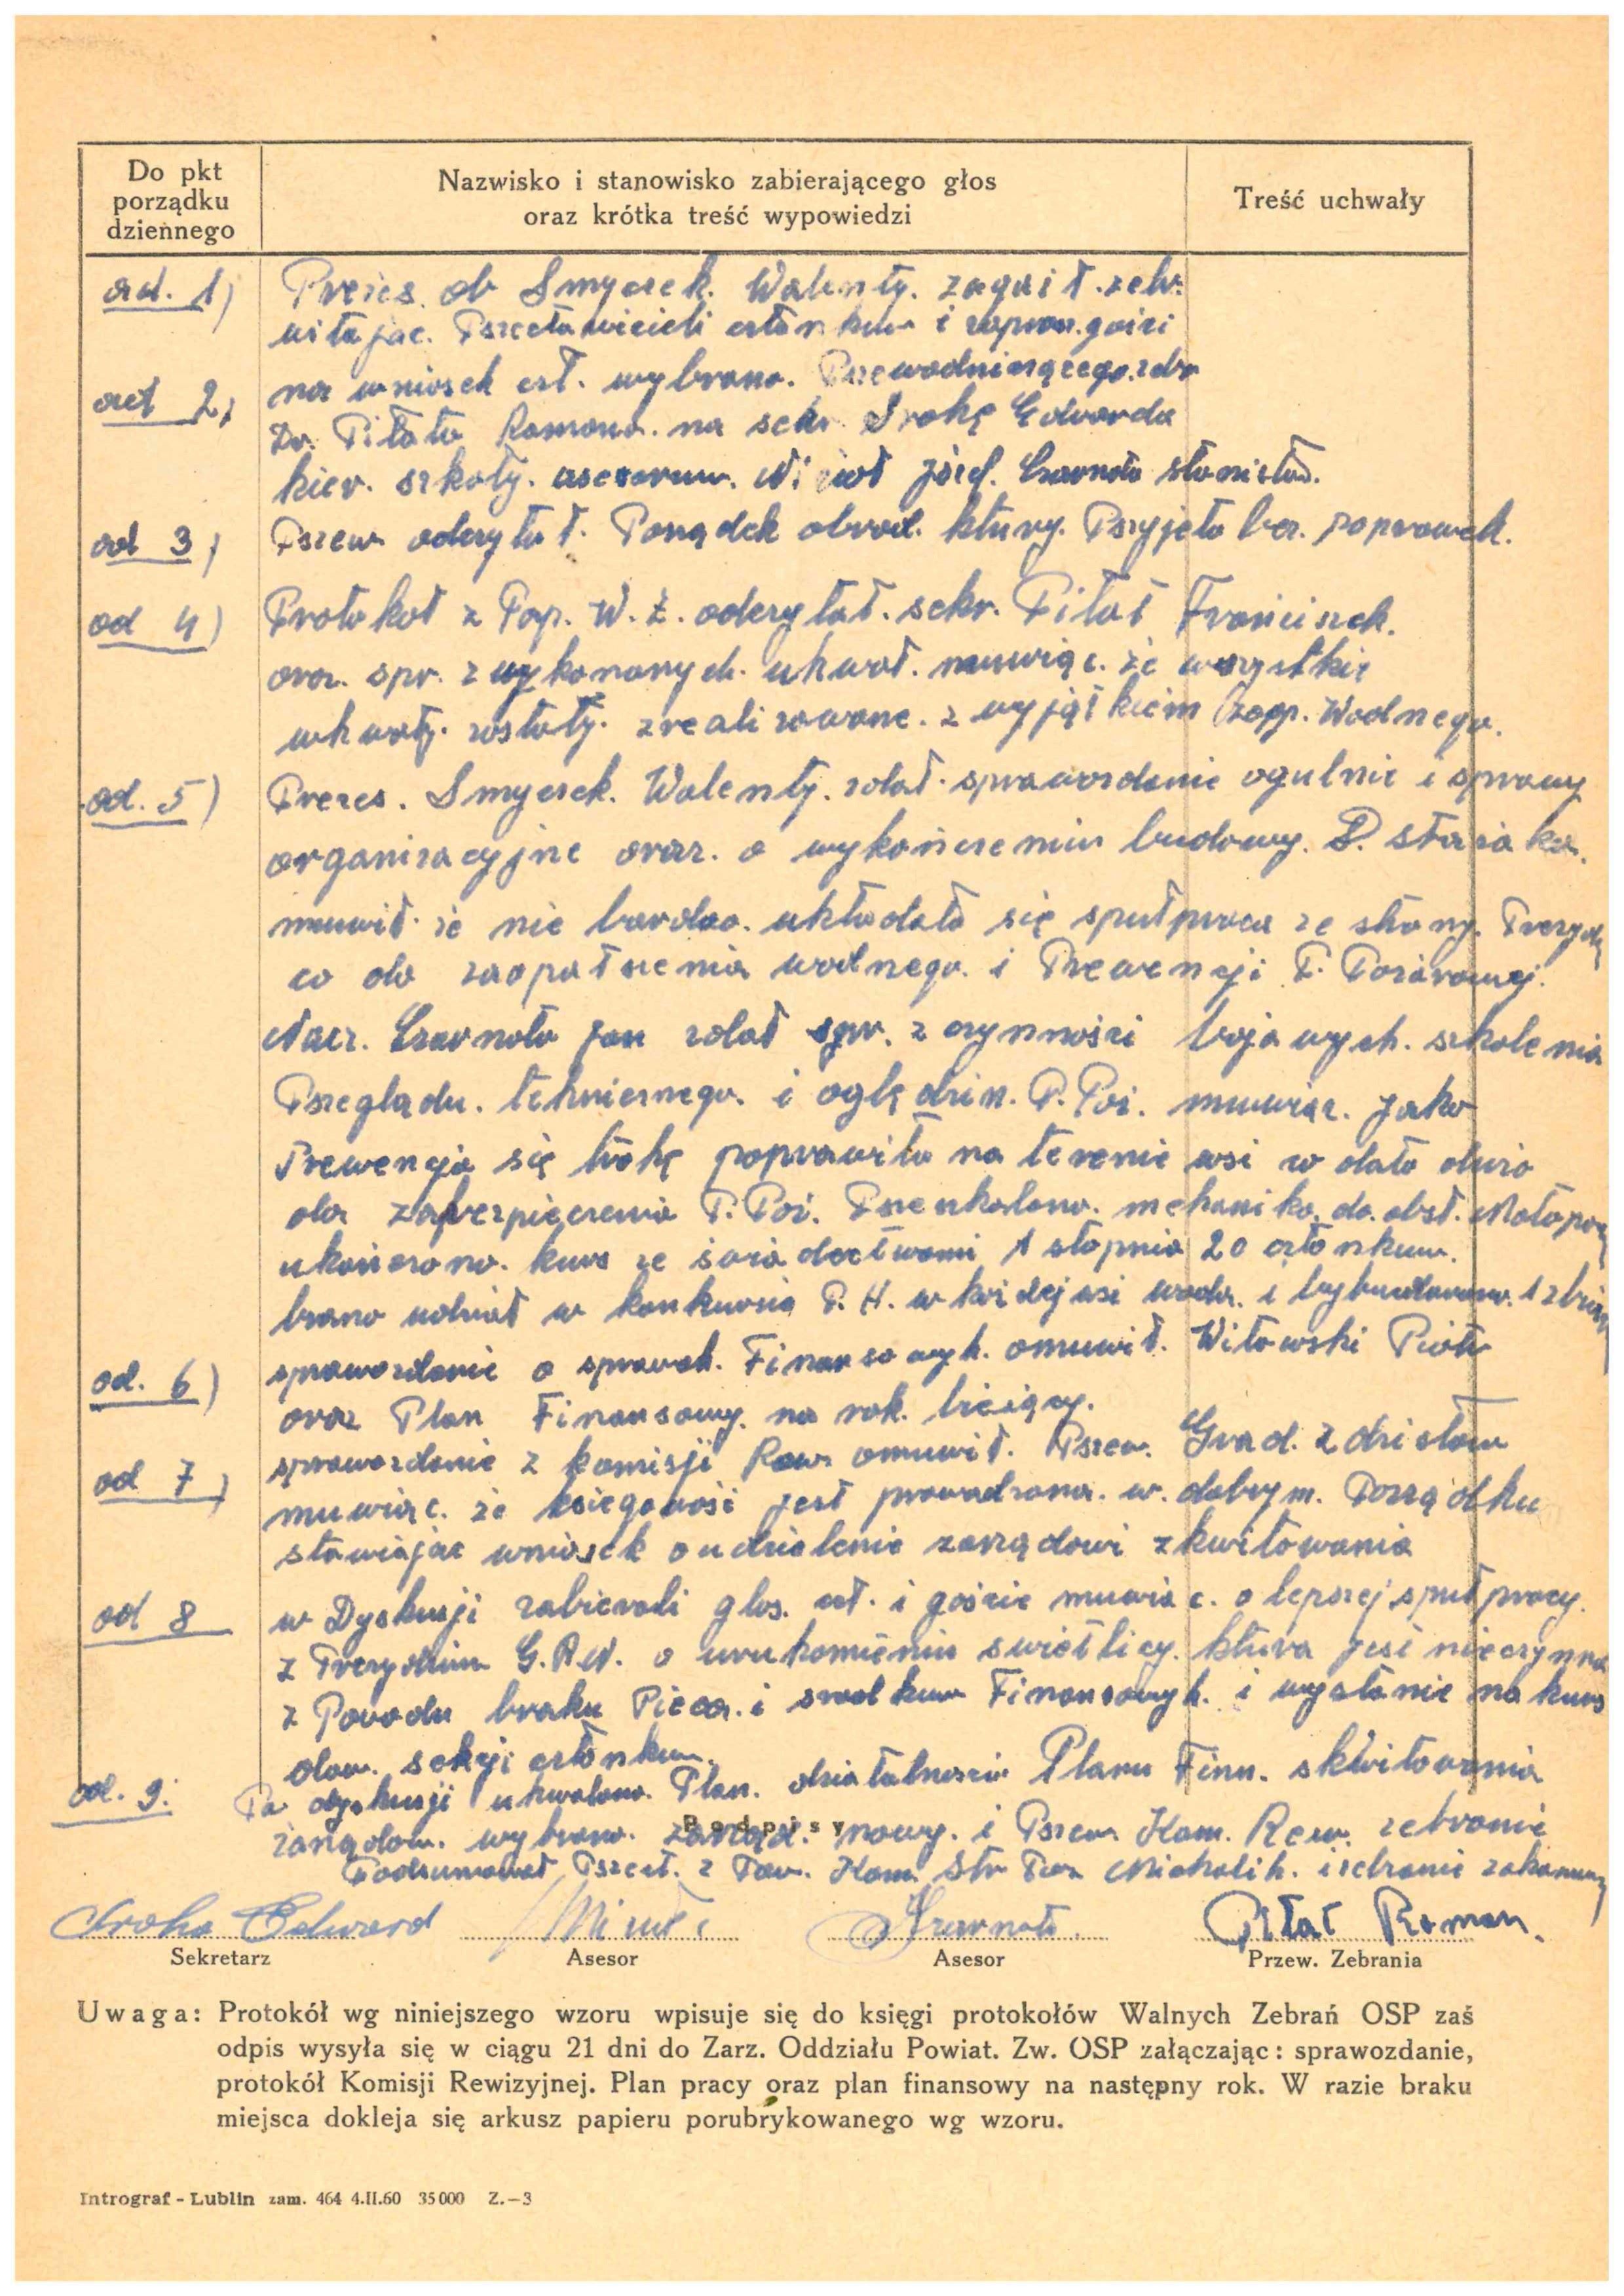 Do pkt
porządku
dziennego
Nazwisko i stanowisko zabierającego głos
oraz krótka treść wypowiedzi
Treść uchwały
ad. 1) Prezes. Smyczek. Walenty. zagaił. zebr.
witajac. członkuw i gości
ad 2) na wniosek czł. wybrano. Pszewodniczącego. zebr
Dr. Piłata Romana. na sekr Srokę Edwarda
kier. szkoły. aseserow. Józef. Czarnota stanisław.
ad 3) Pszew odczytał. Poządek obrad. ktury. Pszyjęto bez. poprawek.
ad 4) Protokoł z Pop. W. Z. odczytał. sekr. Piłat Franciszek.
oraz. spr. z wykonanych. uhwał. muwiąc. że wszystkie
uhwały. zostały. zrealizowane. z wyjątkiem zaop. Wodnego.
ad. 5) Prezes. Smyczek. Walenty. zdał. sprawozdanie ogulnie i sprawy
organizacyjne oraz. o wykończeniu budowy.
muwił. że nie bardzo. układała się spułpraca ze strony. Prezyd
co do zaopatszenia wodnego. i Prewencji P. Pożarowej.
Nacz. Czarnota Jan zdał spr. z czynności bojowych. szkolenia
Pszeglądu. tehnicznego. i oględzin. P. Poż. muwiąc. jako
Prewencja się trohę poprawiła na terenie wsi co dało dużo
dla zabezpieczenia P. Poż. Pszeszkolono. mehanika. do. obsł. Motopom
ukończono. kurs ze świadectwami 1 stopnia 20 członkuw.
brano udział w konkursie P. H. w każdej wsi woda. i wybudowano. 1 zbior
ad. 6) sprawozdanie o sprawah. Finansowyh. omuwił. Witowski Piotr
oraz Plan Finansowy. na rok. bieżący.
ad 7) sprawozdanie z komisji Rew. omuwił. Pszew. Grad. Zdzisław
muwiąc. że księgowość jest prowadzona. w. dobrym. Poządku
stawiając wniosek o udzielenie zarządowi zkwitowania
ad 8 w Dyskusji zabierali głos. czł. i goście muwiąc. o lepszej spułpracy.
z Prezydium G.R.N. o uruhomieniu swietlicy. ktura jest nieczynna
z Powodu braku Pieca. i srodkuw Finansowyh. i wysłanie na kurs
sekcji członkuw.
ad. 9. Po dyskusji uhwalono. Plan. działalnosci Planu Finn. skwitowania
zarządow. wybrano. zarząd. nowy. i Pszew Kom. Rew. zebranie
Podsumował Pszest. z Pow. Kom. Str Poż i zebranie
Podpisy
Sroka Edward Czarnota Piłat Roman.
Sekretarz Asesor Asesor Przew. Zebrania
Uwaga: Protokół wg niniejszego wzoru wpisuje się do księgi protokołów Walnych Zebrań OSP zaś
odpis wysyła się w ciągu 21 dni do Zarz. Oddziału Powiat. Zw. OSP załączając: sprawozdanie,
protokół Komisji Rewizyjnej. Plan pracy oraz plan finansowy na następny rok. W razie braku
miejsca dokleja się arkusz papieru porubrykowanego wg wzoru.
Intrograf - Lublin zam. 464 4.II.60 35 000 Z.—3